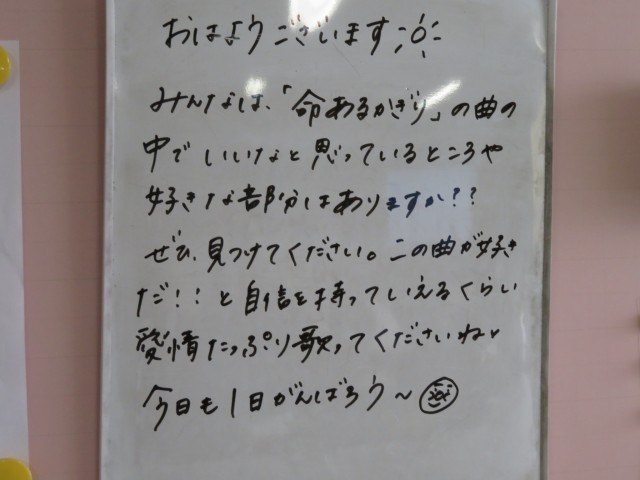 おはようございます
みんなは、「命あるかぎり」の曲の
中でいいなと思っているところや
好きな部分はありますか??
ぜひ、見つけてください。この曲が好き
だ!!と自信を持っていえるくらい
愛情たっぷり歌ってくださいね
今日も1日がんばろう〜